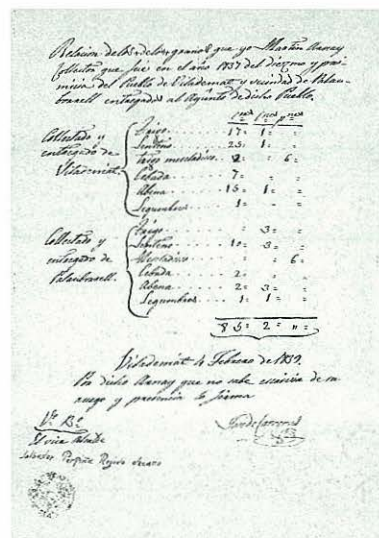 Relacion de los granos que yo Martin Aunay
Collector que fui en el año 1837 del diezmo y pri-
micia del Pueblo de Vilademat y vecindad de Palau-
borrell entregados al Ayunto de dicho Pueblo.
Collectado y
entregado de
Vilademat.
Trigo 17 = 1 =
Senteno 23 = 1 =
Trigo mescladizo 2 = 6 =
Cebada 7 =
Abena 15 = 1 =
Legumbres 1 =
Collectado y
entregado de
Palauborrell.
Trigo 3 =
Senteno 10 = 3 =
Mescladizo 6 =
Cebada 2 =
Abena 2 = 3 =
Legumbres 1 = 1 =
85 = 2 = " =
Vilademat 4 Febrero de 1839.
Por dicho Aunay que no sabe escrivir de su
ruego y presencia lo firma
Vto Bo
El vice Alcalde
Salvador Regidor